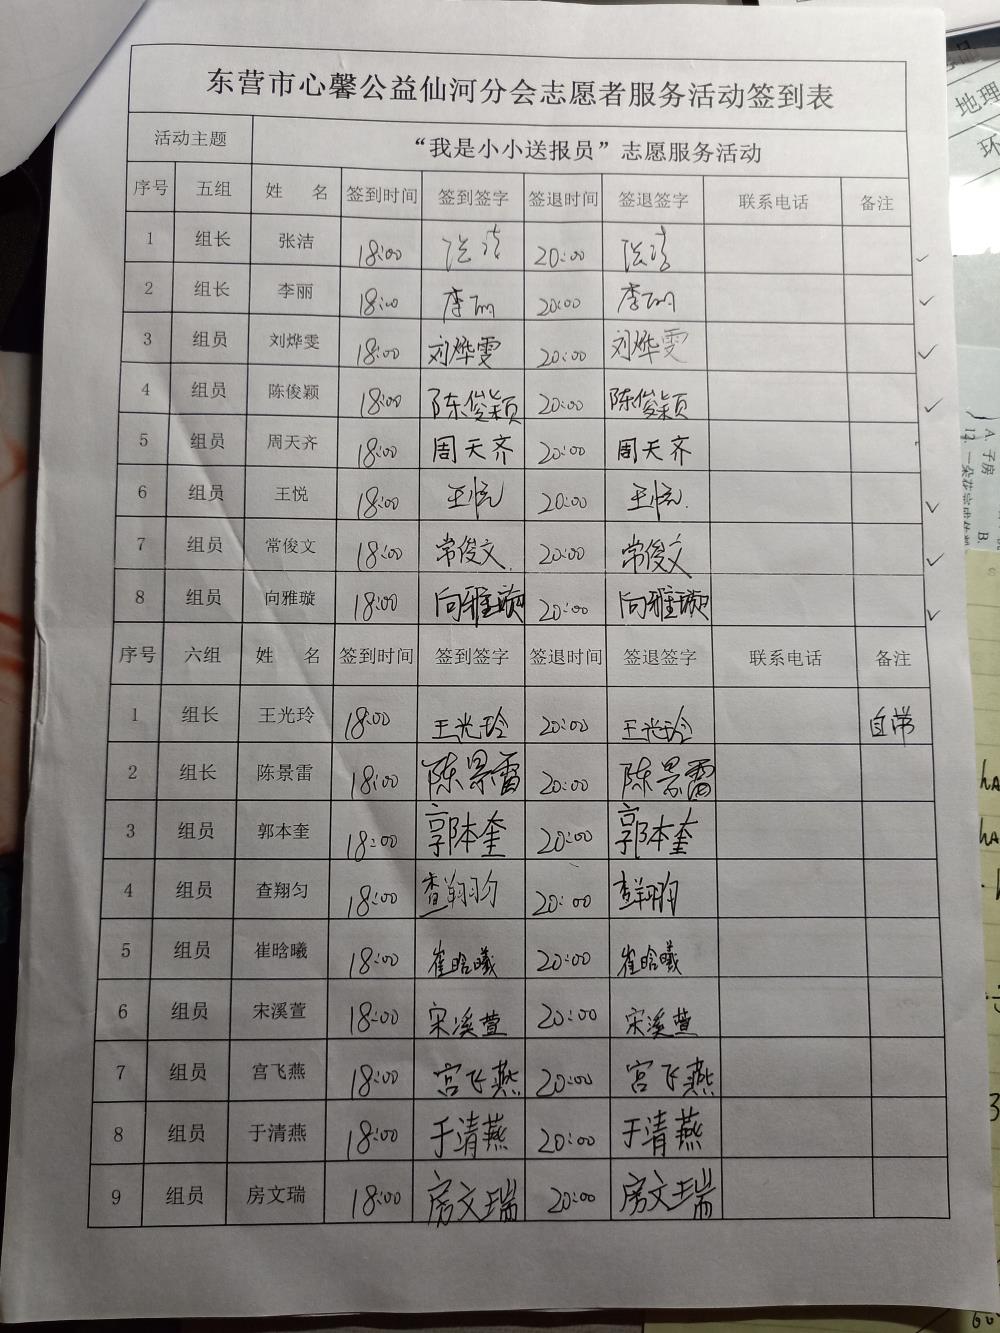 东营市心馨公益仙河分会志愿者服务活动签到表
活动主题 “我是小小送报员”志愿服务活动
序号 五组 姓 名 签到时间 签到签字 签退时间 签退签字 联系电话 备注
1 组长 张洁 18:00 张洁 20:00 张洁
2 组长 李丽 18:00 李丽 20:00 李丽
3 组员 刘烨雯 18:00 刘烨雯 20:00 刘烨雯
4 组员 陈俊颖 18:00 陈俊颖 20:00 陈俊颖
5 组员 周天齐 18:00 周天齐 20:00 周天齐
6 组员 王悦 18:00 王悦 20:00 王悦.
7 组员 常俊文 18:00 常俊文. 20:00 常俊文
8 组员 向雅璇 18:00 向雅璇 20:00 向雅璇
序号 六组 姓 名 签到时间 签到签字 签退时间 签退签字 联系电话 备注
1 组长 王光玲 18:00 王光玲 20:00 王光玲 自带
2 组长 陈景雷 18:00 陈景雷 20:00 陈景雷
3 组员 郭本奎 18:00 郭本奎 20:00 郭本奎
4 组员 查翔匀 18:00 查翔匀 20:00 查翔匀
5 组员 崔晗曦 18:00 崔晗曦 20:00 崔晗曦
6 组员 宋溪萱 18:00 宋溪萱 20:00 宋溪萱
7 组员 宫飞燕 18:00 宫飞燕 20:00 宫飞燕
8 组员 于清燕 18:00 于清燕 20:00 于清燕
9 组员 房文瑞 18:00 房文瑞 20:00 房文瑞
地理
环
A. 子房
B.